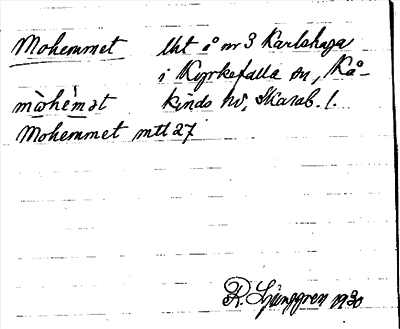 Mohemmet Uht å nr 3 Karlshaga
i Kyrkefalla sn, Kå-
mòhèmət kinds hd, Skarab. l.
Mohemmet mtl 27
R. Ljunggren 1930